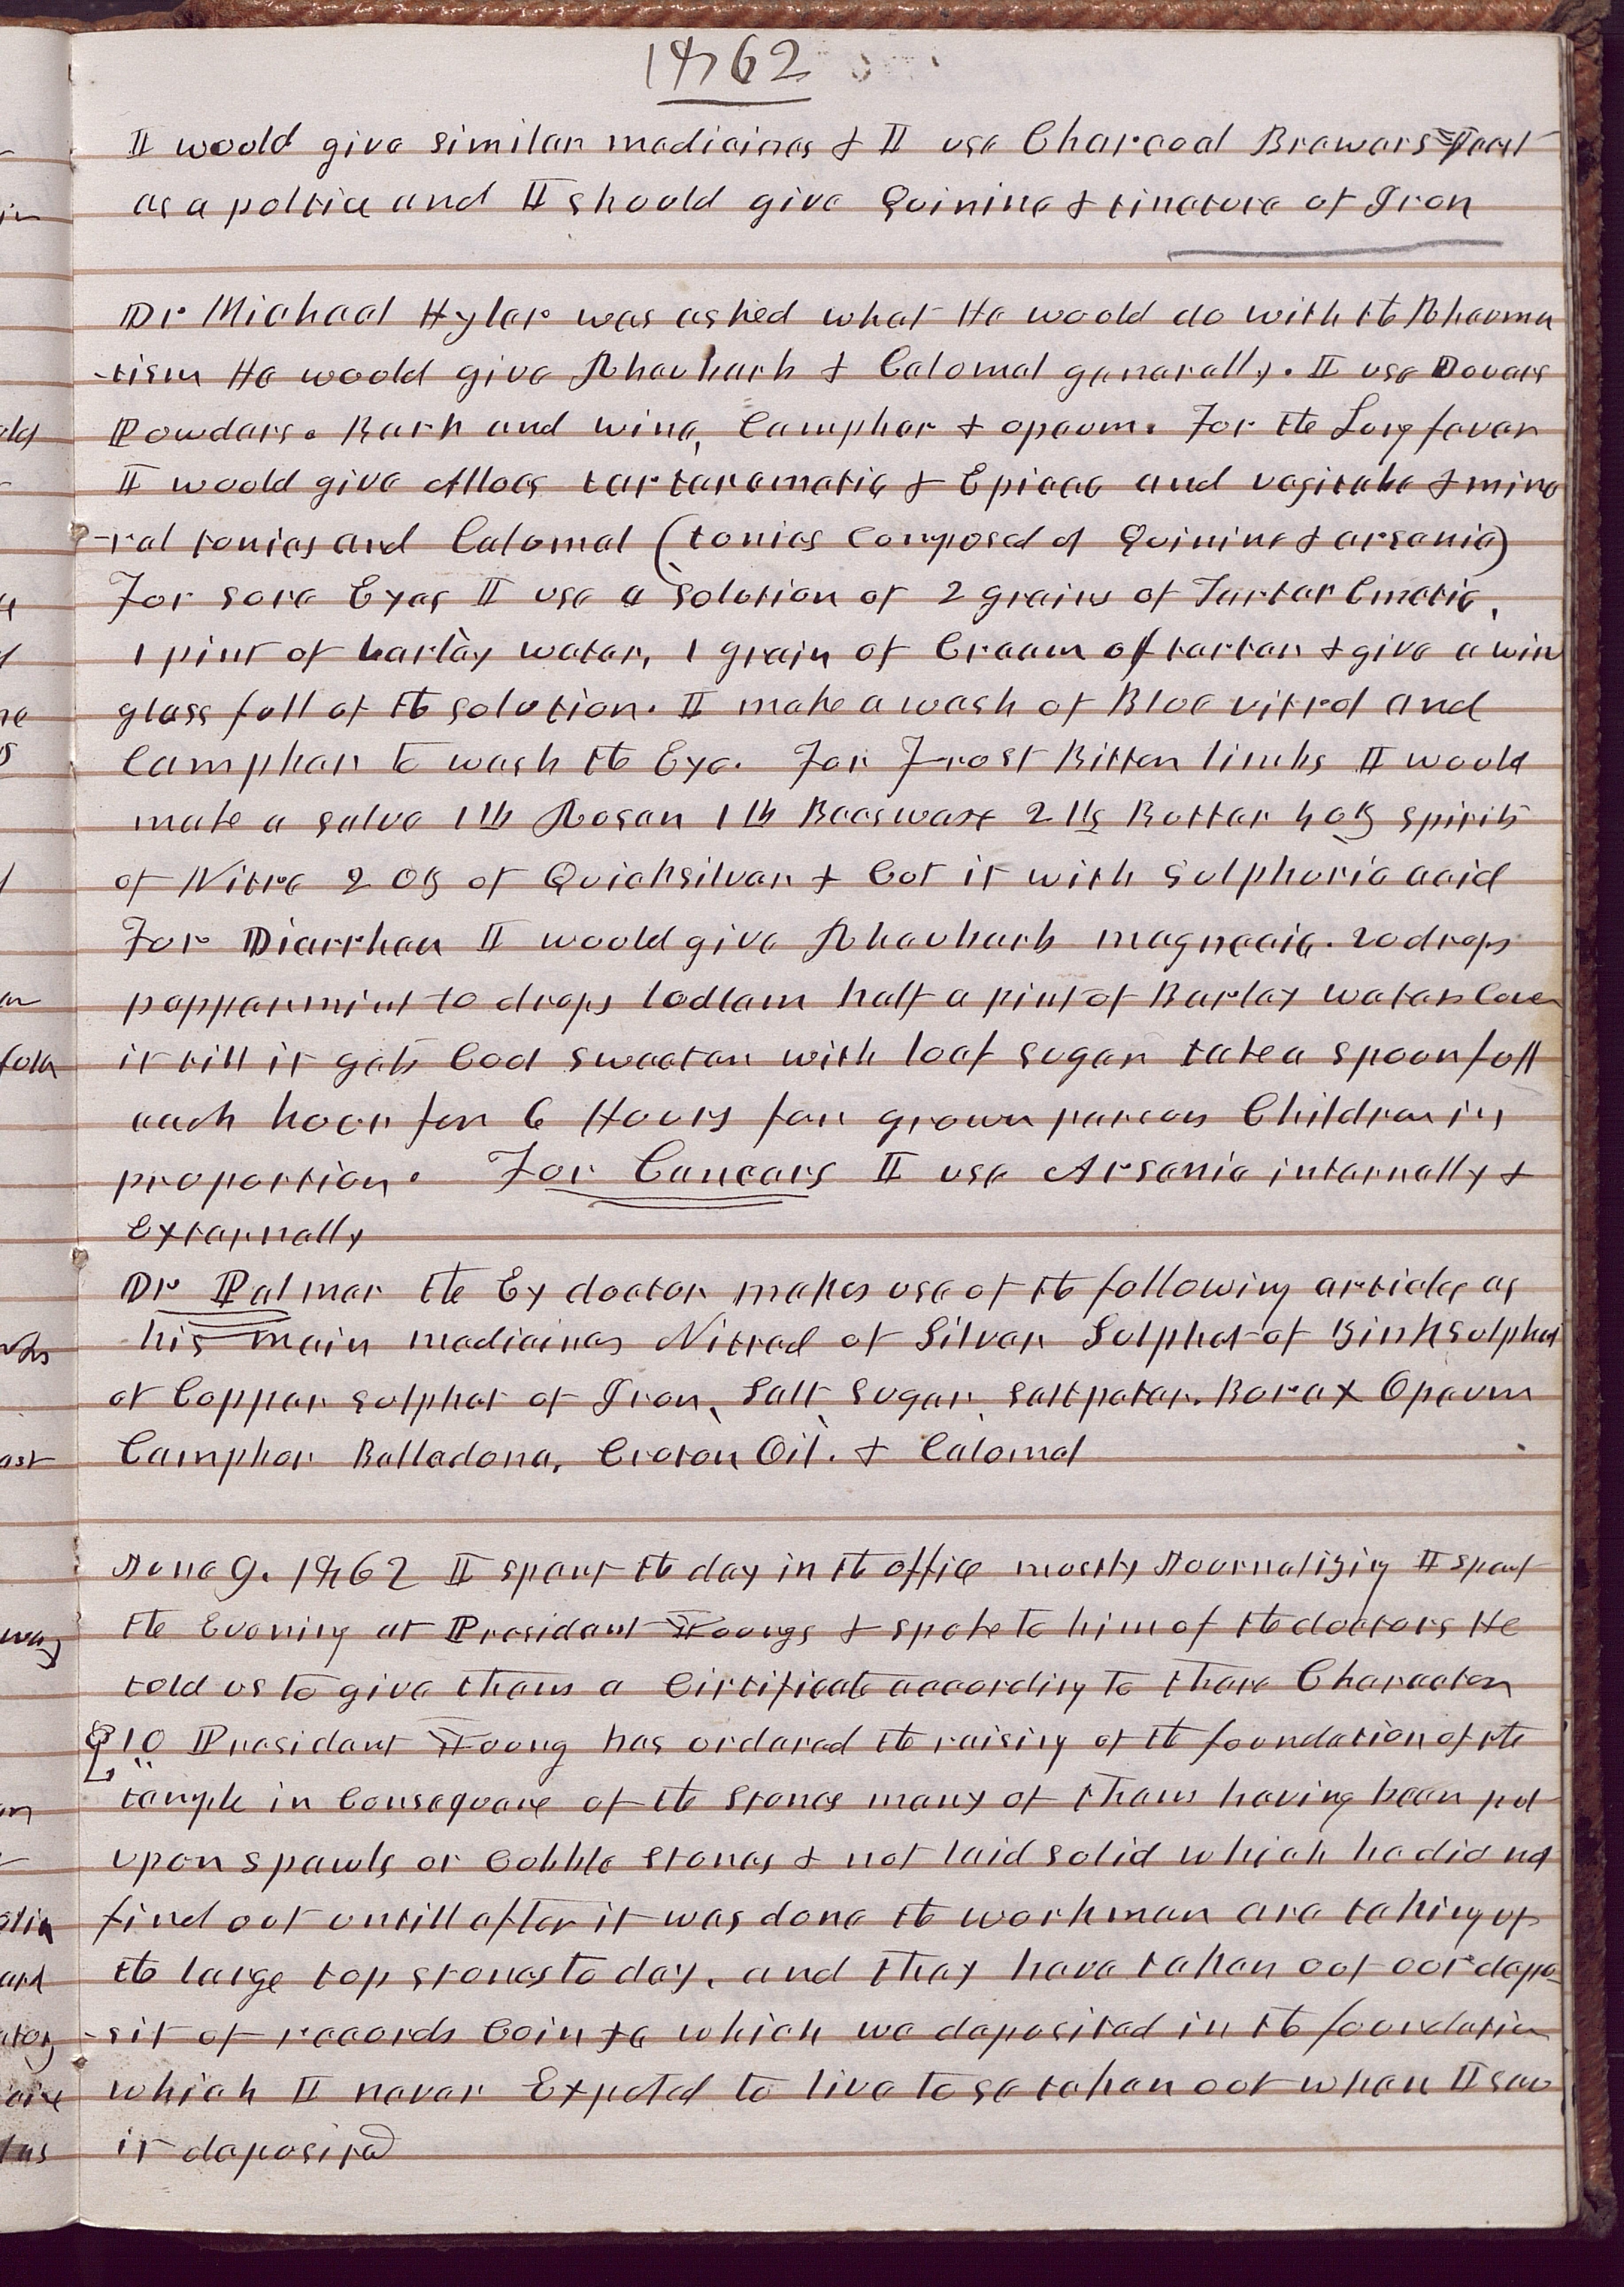 1862
I would give similar medicines & I use Charcoal Brewers Yeast
as a poltice and I should give Quinine & tincture of Iron
Dr Michael Hyler was asked what He would do with the Rheuma
-tism He would give Rheubarb & Calomel generally. I use Dovers
Powders. Bark and wine, Camphor & opeum. For the Lung fever
I would give Alloes tartaremetic & Epicac and vegitable & mine
-ral tonics and Calomel (tonics composed of Quinine & arsenic)
For sore Eyes I use a solution of 2 grains of Tartar Emetic,
1 pint of barley water, 1 grain of Cream of tartar & give a win
glass full of the solution. I make a wash of Blue vitrol and
Camphor to wash the Eye. For Frost Bitten limbs I would
make a salve 1 lb Rosen 1 lb Beeswax 2 lbs Butter 4 oz spirits
of Nitre 2 oz of Quicksilver & Cut it with sulphuric acid
For Diarrhea I would give Rheubarb magnecia. 20 drops
pepperment 10 drops lodlam half a pint of Barley water
it till it gets Cool sweeten with loaf sugar take a spoonfull
each hour for 6 Hours for grown persons Children in
proportion. For Cancers I use Arsenic internally &
Externally
Dr Palmer the Ey doctor makes use of the following articles as
his main medicines Nitred of Silver Sulphet of Zink Sulphet
of Copper Sulphet of Iron, Salt, Sugar, Saltpeter. Borax Opeum
Camphor Belladona, Croton Oil. & Calomel
June 9. 1862 I spent the day in the office mostly Journalizing I spent
the Evening at President Youngs & spoke to him of the doctors He
told us to give them a Cirtificate according to there Character
10 President Young has ordered the raising of the foundation of the
temple in Consequence of the stones many of them having been put
upon spawls or Cobble stones & not laid solid which he did not
find out untill after it was done the workmen are taking up
the large top stones to day. and they have taken out our depo-
-sit of records Coin &c which we deposited in the foundation
which I never Expected to live to se taken out when I saw
it deposited